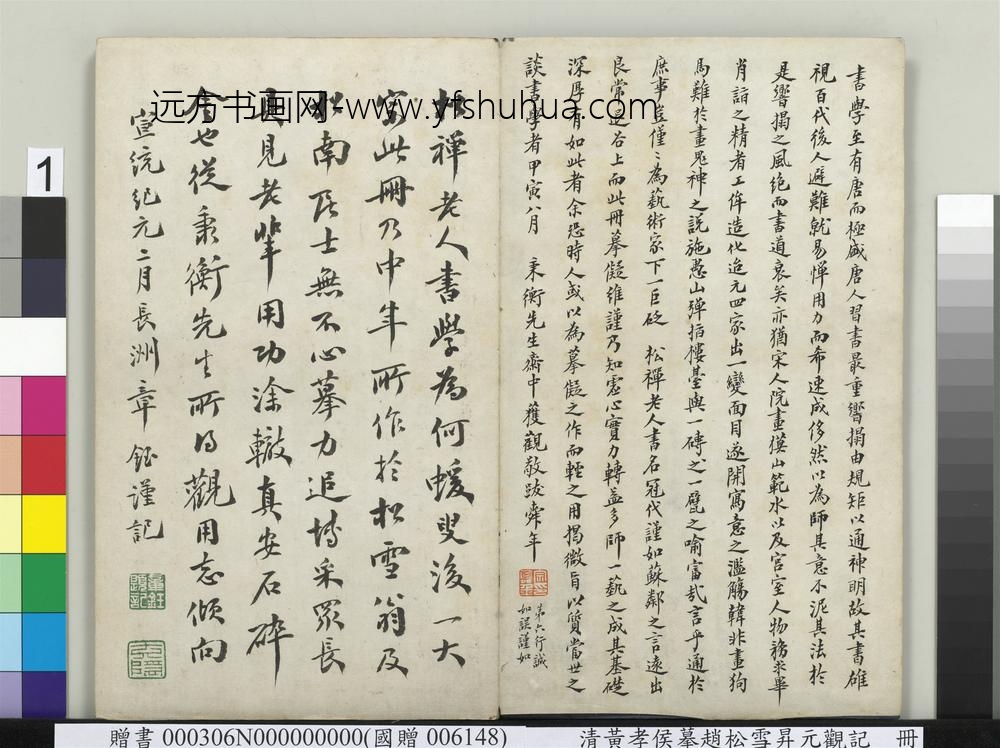 書學至有唐而極盛唐人習書最重響搨由規矩以通神明故其書雄
視百代後人避難就易憚用力而希速成侈然以為師其意不泥其法於
是響搨之風絕而書道衰矣亦猶宋人院畫模山範水以及宮室人物務求畢
肖詣之精者工侔造化迨元四家出一變面目遂開寫意之濫觴韓非畫狗
馬難於畫鬼神之說施愚山彈指樓臺與一磚之一甓之喻富哉言乎通於
庶事豈僅之為藝術家下一巨砭 松禪老人書名冠代謹如蘇鄰之言遠出
良常 谷上而此冊摹擬維謹乃知虛心實力轉益多師一藝之成其基礎
深厚有如此者余恐時人或以為摹擬之作而輕之用揭微旨以質當世之
談書學者甲寅八月 秉衡先生齋中獲觀敬跋 年
第六行誠
如誤謹如
松禪老人書學為何蝯叟後一大
家此冊乃中年所作於松雪翁及
松南居士無不心摹力追博采眾長
具見老輩用功塗轍真安石碎
金也從秉衡先生所得觀用志傾向
宣統紀元二月長洲章鈺謹記
远方书画网-www.yfshuhua.com
1
贈書 000306N000000000(國贈 006148)
清黃孝侯摹趙松雪昇元觀記 冊